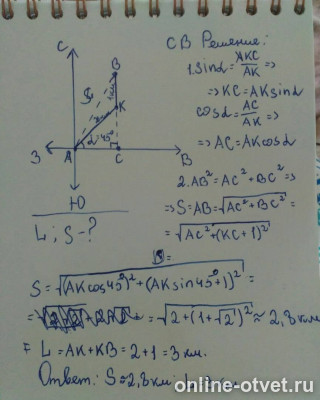 С
СВ Решение:
1. sinα = KC/AK =>
=> KC = AK sinα
cosα = AC/AK =>
=> AC = AK cosα
В
S
K
α=45°
З A C В
Ю
L; S-?
2. AB² = AC² + BC² =>
=> S = AB = √(AC² + BC²) =
= √(AC² + (KC+1)²)
S = √((AK cos45°)² + (AK sin45°+1)²) =
= √(2+(1+√2)²) ≈ 2,8 км.
L = AK + KB = 2+1 = 3 км.
Ответ: S≈2,8 км;
online-otvet.ru